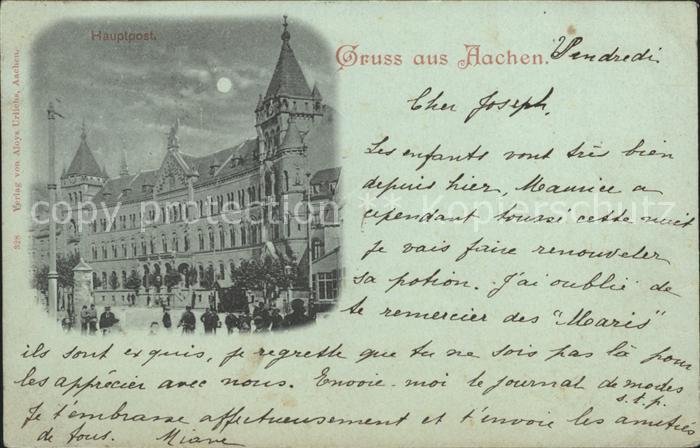 Hauptpost.
Gruss aus Aachen. Vendredi
Cher Joseph,
Les enfants vont très bien
depuis hier, Maurice a
cependant toussé cette nuit
je vais faire renouveler
sa potion. J'ai oublié de
te remercier des "Maris"
ils sont exquis, je regrette que tu ne sois pas là pour
les apprécier avec nous. Envoie-moi le journal de modes
s.t.p.
Je t'embrasse affectueusement et t'envoie les amitiés
de tous.
328 Verlag von Aloys Urlichs, Aachen.
copy protection Kopierschutz